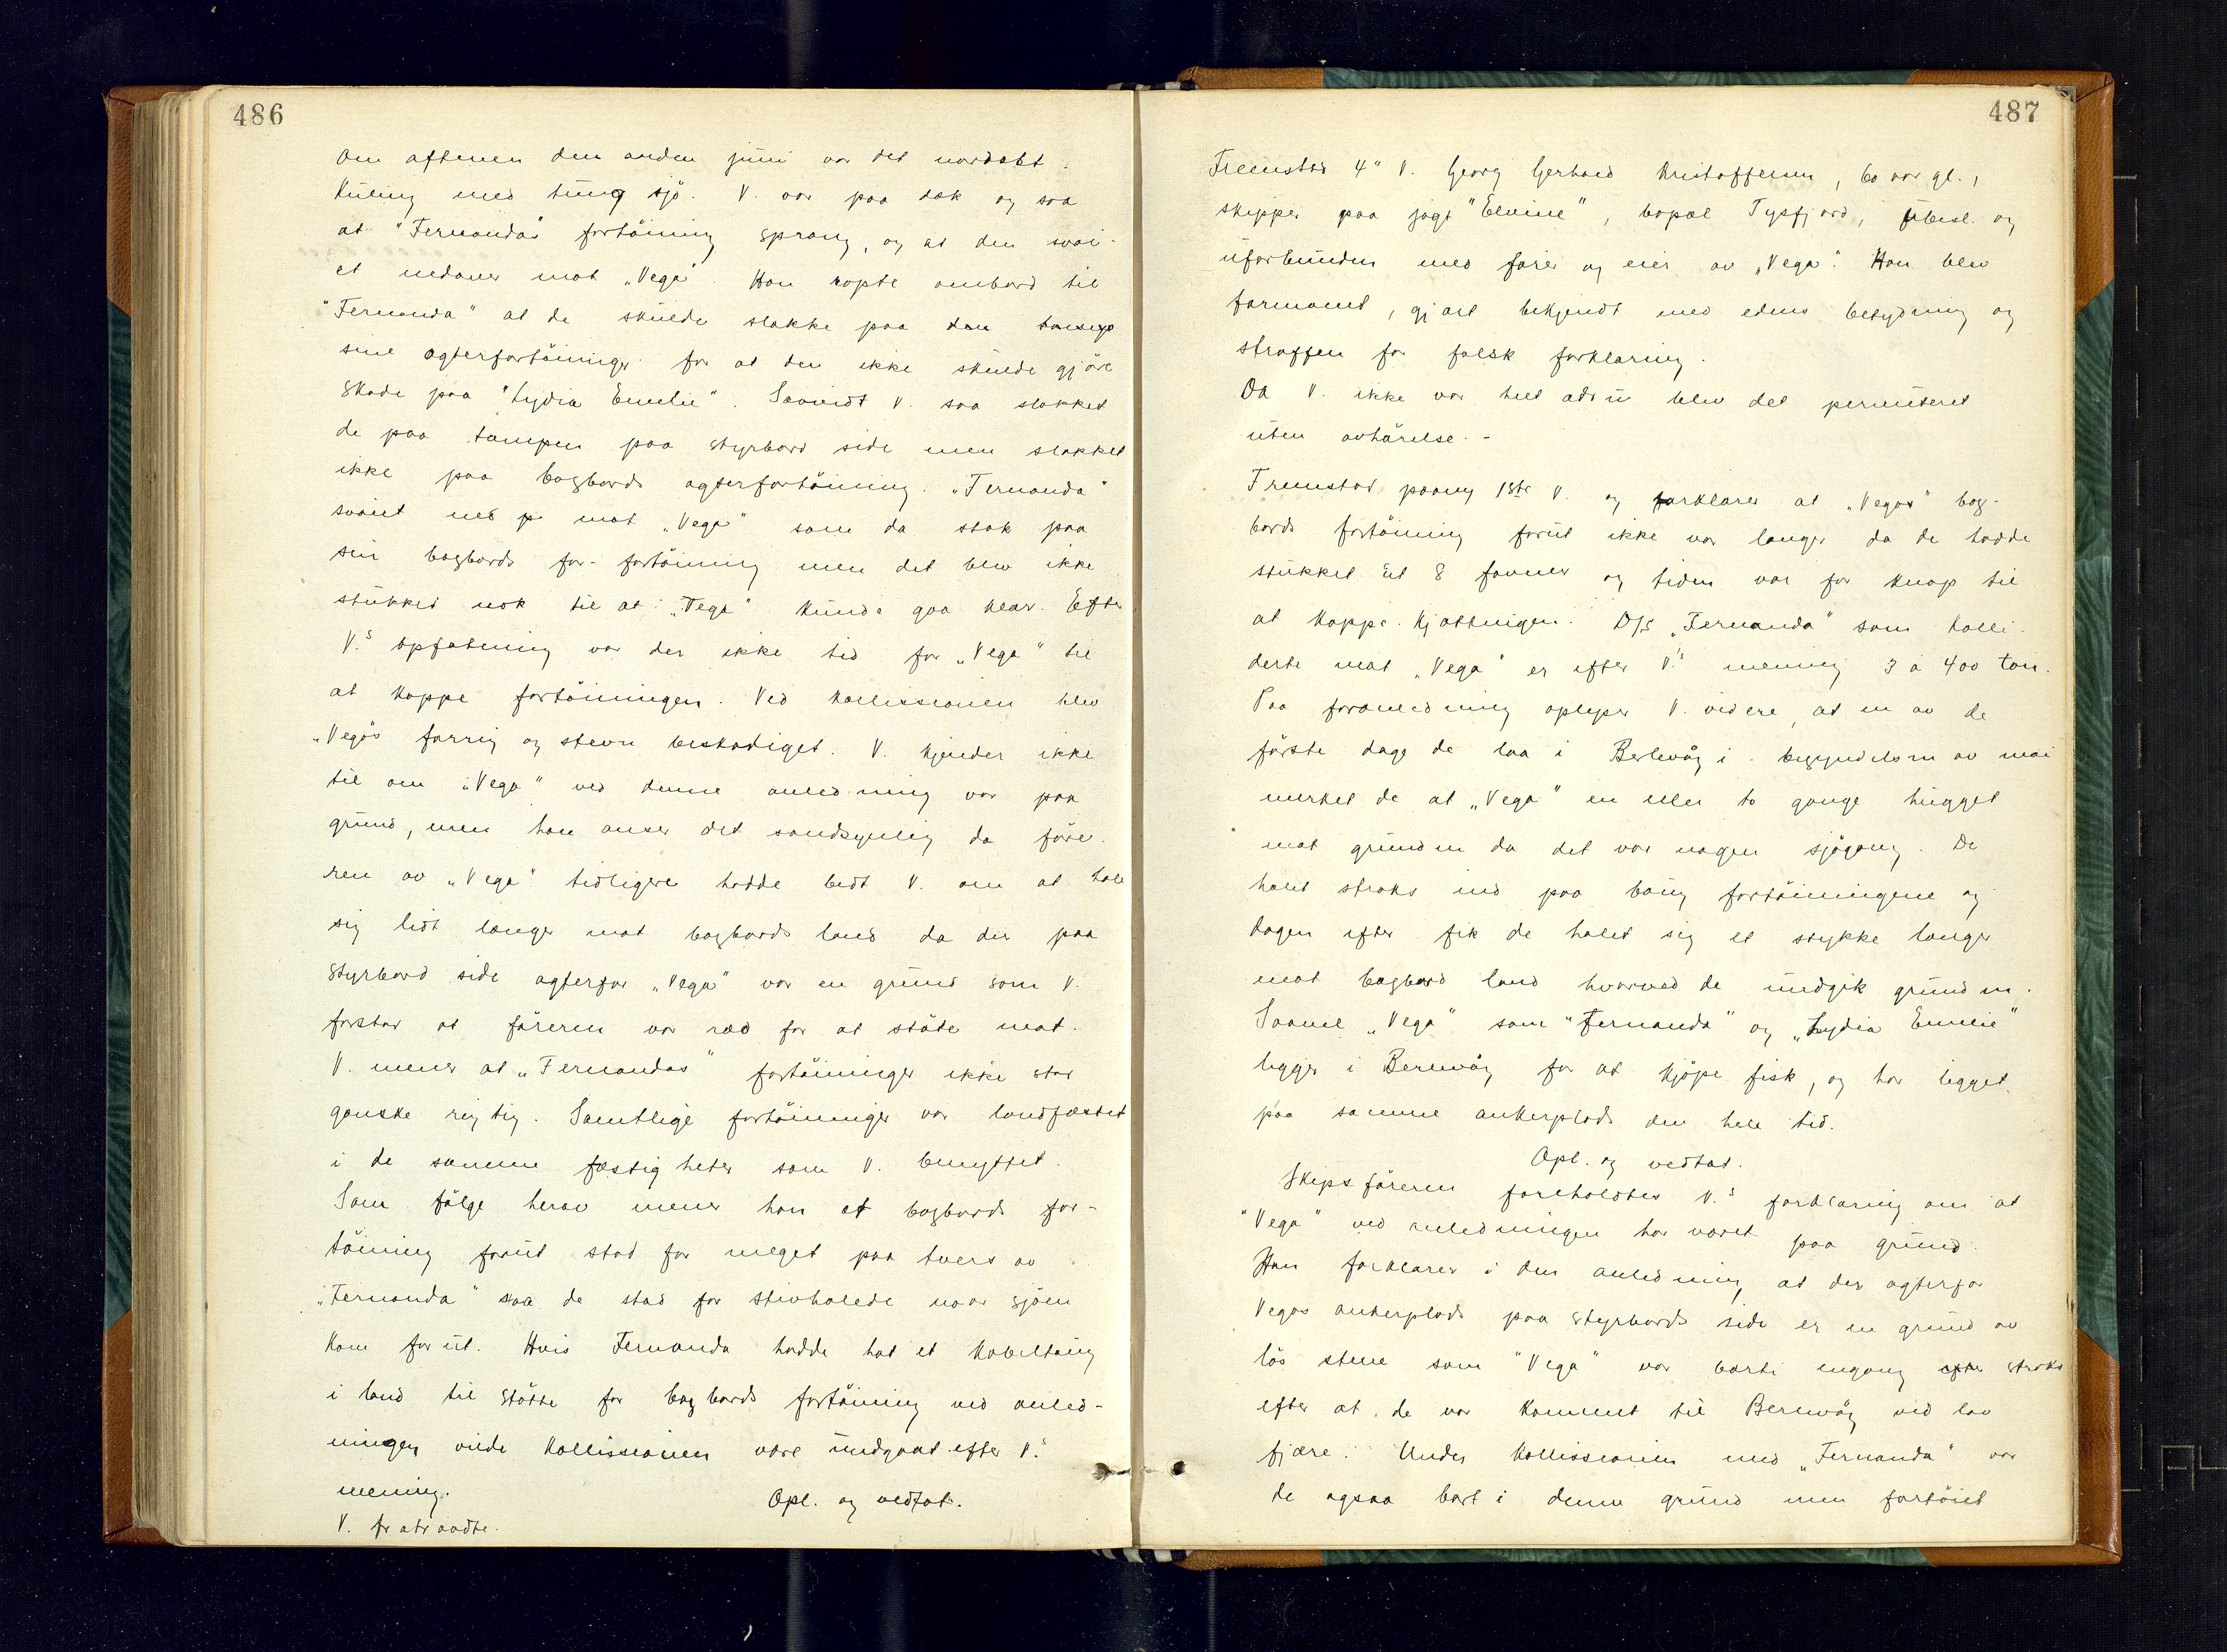 486
Om aftenen den anden juni var det nordostt.
Kuling med tung sjø. V. var paa dæk og saa
at "Fernandas fortöining sprang, og at den svai-
et nedover mot „Vega". Han ropte ombord til
"Fernanda" at de skulde slakke paa den
sine agterfortöininger for at den ikke skulde gjöre
Skade paa "Lydia Emelie". Saavidt V. saa slakket
de paa tampen paa Styrbord side men slakket
ikke paa bagbords agterfortöining. „Fernanda"
svaiet ned p mot „Vega" som da stak paa
sin bagbords for-fortöining men det blev ikke
stukket nok til at „Vega" kunde gaa klar. Efter
V.s opfatning var der ikke tid for „Vega" til
at kappe fortöiningen. Ved kollissionen blev
„Vegas forrig og stevn beskadiget. V. kjender ikke
til om „Vega" ved denne anledning var paa
grund, men han anser det sandsynlig da före-
ren av „Vega" tidligere hadde bedt V. om at hale
sig lidt længer mot bagbords land da der paa
Styrbord side agterfor „Vega" var en grund som V.
forstod at föreren var ræd for at stöte mot.
V. mener at „Fernandas" fortöininger ikke stod
ganske rigtig. Samtlige fortöininger var landfæstet
i de samme fæstigheter som V. benyttet.
Som fölge herav mener han at bagbords for-
töining forut stod for meget paa tvers av
„Fernanda" saa de stod for stivhalede naar sjöen
kom forut. Hvis Fernanda hadde hat et Kabeltaug
i land til Stötte for bagbords fortöining ved anled-
ningen vilde kollissionen være undgaat efter V.s
mening.
Opl. og vedtat.
V. fratraadte.
487
Fremstod 4" V. Georg Gerhard Kristoffersen, 60 aar gl.,
skipper paa jagt "Elvine", bopæl Tysfjord, ubesl. og
uforbunden med förer og eier av „Vega". Han blev
formanet, gjort bekjendt med edens betydning og
straffen for falsk forklaring.
Da V. ikke var helt ædru blev det permiteret
uten avhörelse. -
Fremstod paany 1ste V. og forklarer at „Vegas" bag-
bords fortöining forut ikke var længer da de hadde
stukket ut 8 favner og tiden var for knap til
at kappe kjættingen. D/S „Fernanda" som kolli-
derte mot „Vega" er efter V.'s mening 3 a 400 ton.
Paa foranledning oplyser V. videre, at en av de
förste dage de laa i Berlevåg i begyndelsen av mai
merket de at „Vega" en eller to gange hugget
mot grunden da det var nogen sjögang. De
halet straks ind paa baug fortöiningene og
dagen efter fik de halet sig et stykke længer
mot bagbord land hvorved de undgik grunden.
Saavel „Vega" som "Fernanda" og „Lydia Emelie"
ligger i Berlevåg for at kjöpe fisk, og har ligget
paa samme ankerplads den hele tid.
Opl. og vedtat.
Skipsföreren foreholdtes V.s forklaring om at
"Vega" ved anledningen har været paa grund.
Han forklarer i den anledning, at der agterfor
Vegas ankerplads paa Styrbords side er en grund av
lös stene som "Vega" var borti engang efter straks
efter at de var kommet til Berlevåg ved lav
fjære. Under kollissionen med „Fernanda" var
de ogsaa bort i denne grund men fartöiet